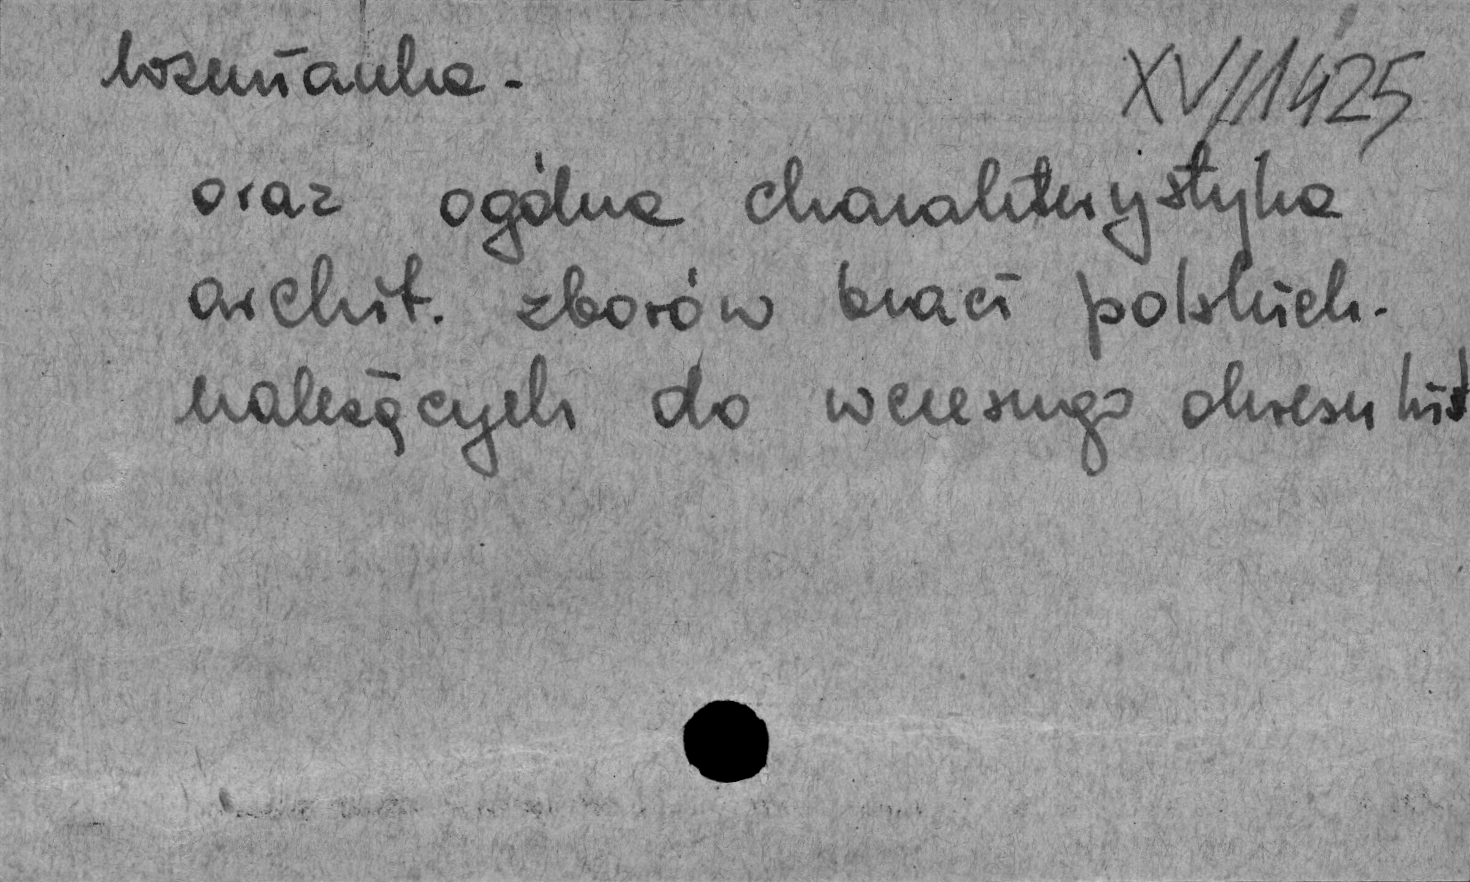 Koźmianka - XV/1425
oraz ogólna charakterystyka
archit. zborów braci polskich -
należących do wczesnego okresu hist